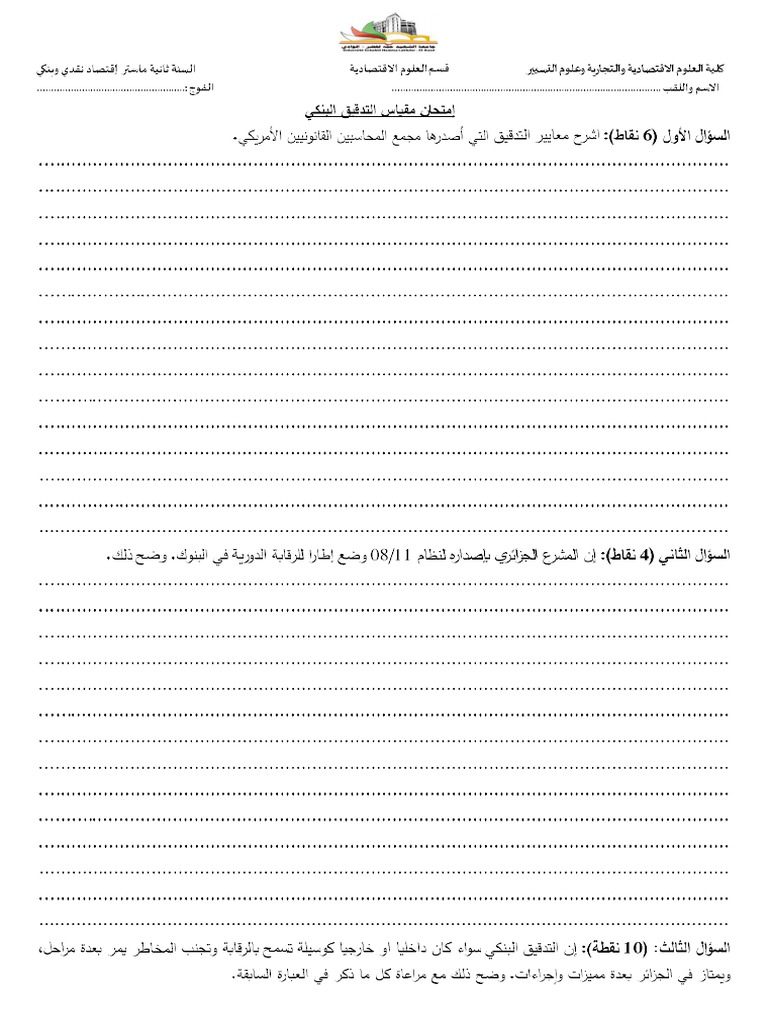 جامعة الشهيد حمه لخضر - الوادي
Université Echahid Hamma Lakhdar - El-Oued
كلية العلوم الاقتصادية والتجارية وعلوم التسيير قسم العلوم الاقتصادية السنة ثانية ماستر إقتصاد نقدي وبنكي
الاسم واللقب ........................................................................ الفوج:..................................................
إمتحان مقياس التدقيق البنكي
السؤال الأول (6 نقاط): اشرح معايير التدقيق التي أصدرها مجمع المحاسبين القانونيين الأمريكي.
السؤال الثاني (4 نقاط): إن المشرع الجزائري بإصداره لنظام 08/11 وضع إطارا للرقابة الدورية في البنوك. وضح ذلك.
السؤال الثالث: (10 نقطة): إن التدقيق البنكي سواء كان داخليا او خارجيا كوسيلة تسمح بالرقابة وتجنب المخاطر يمر بعدة مراحل،
ويمتاز في الجزائر بعدة مميزات وإجراءات. وضح ذلك مع مراعاة كل ما ذكر في العبارة السابقة.